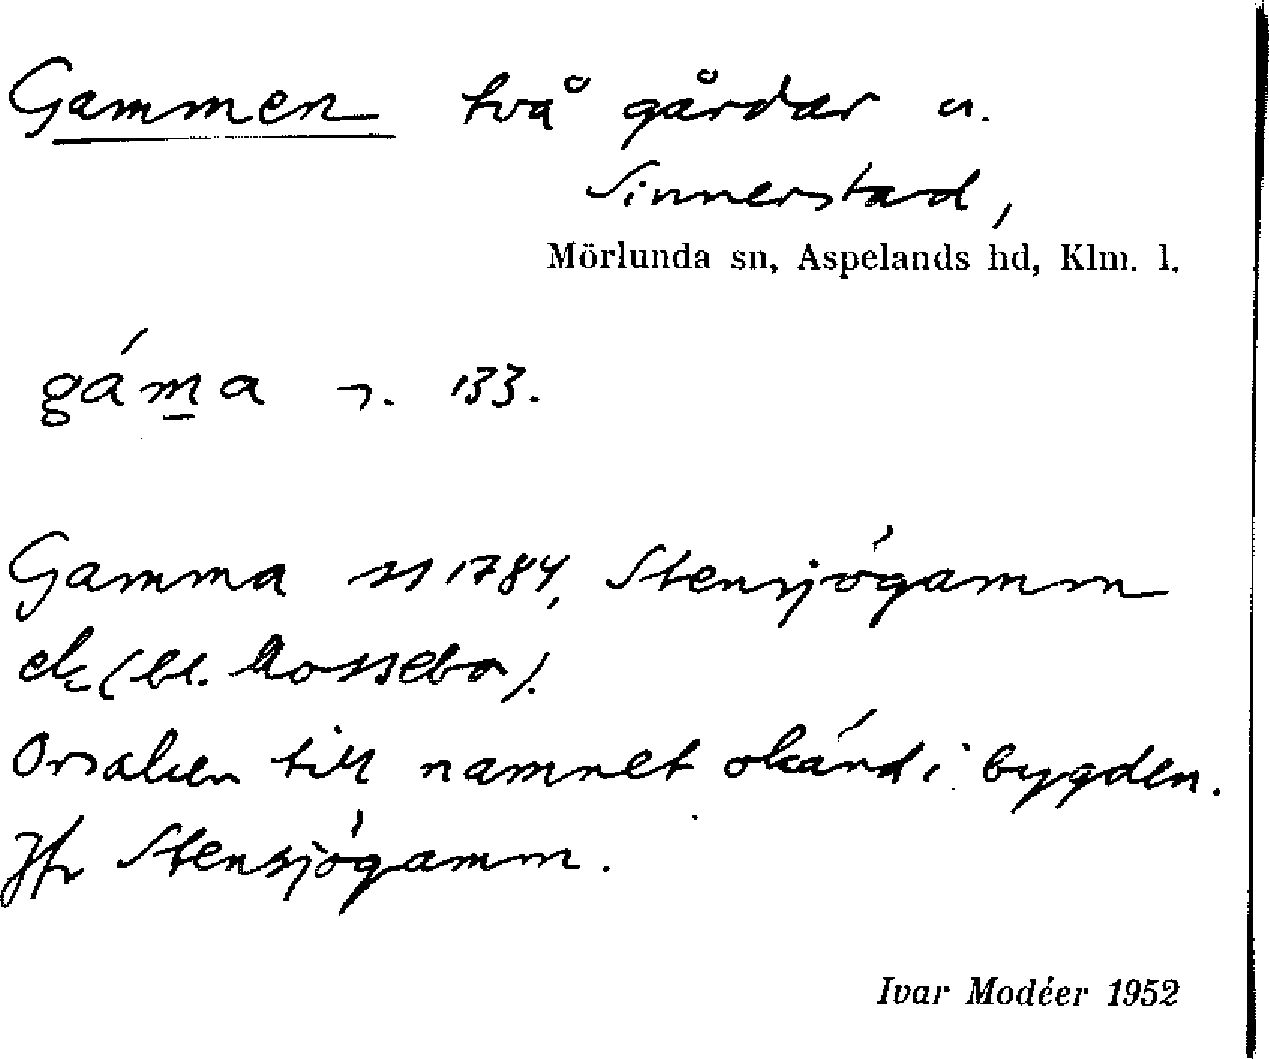 Gammen två gårdar u.
Sinnerstad,
Mörlunda sn, Aspelands hd, Klm. l.
gám̲a 133.
Gamma 1784, Stensjögamm
ek (bl. Mossebo).
Orsaken till namnet okänd i bygden.
Jfr Stensjögamm.
Ivar Modéer 1952